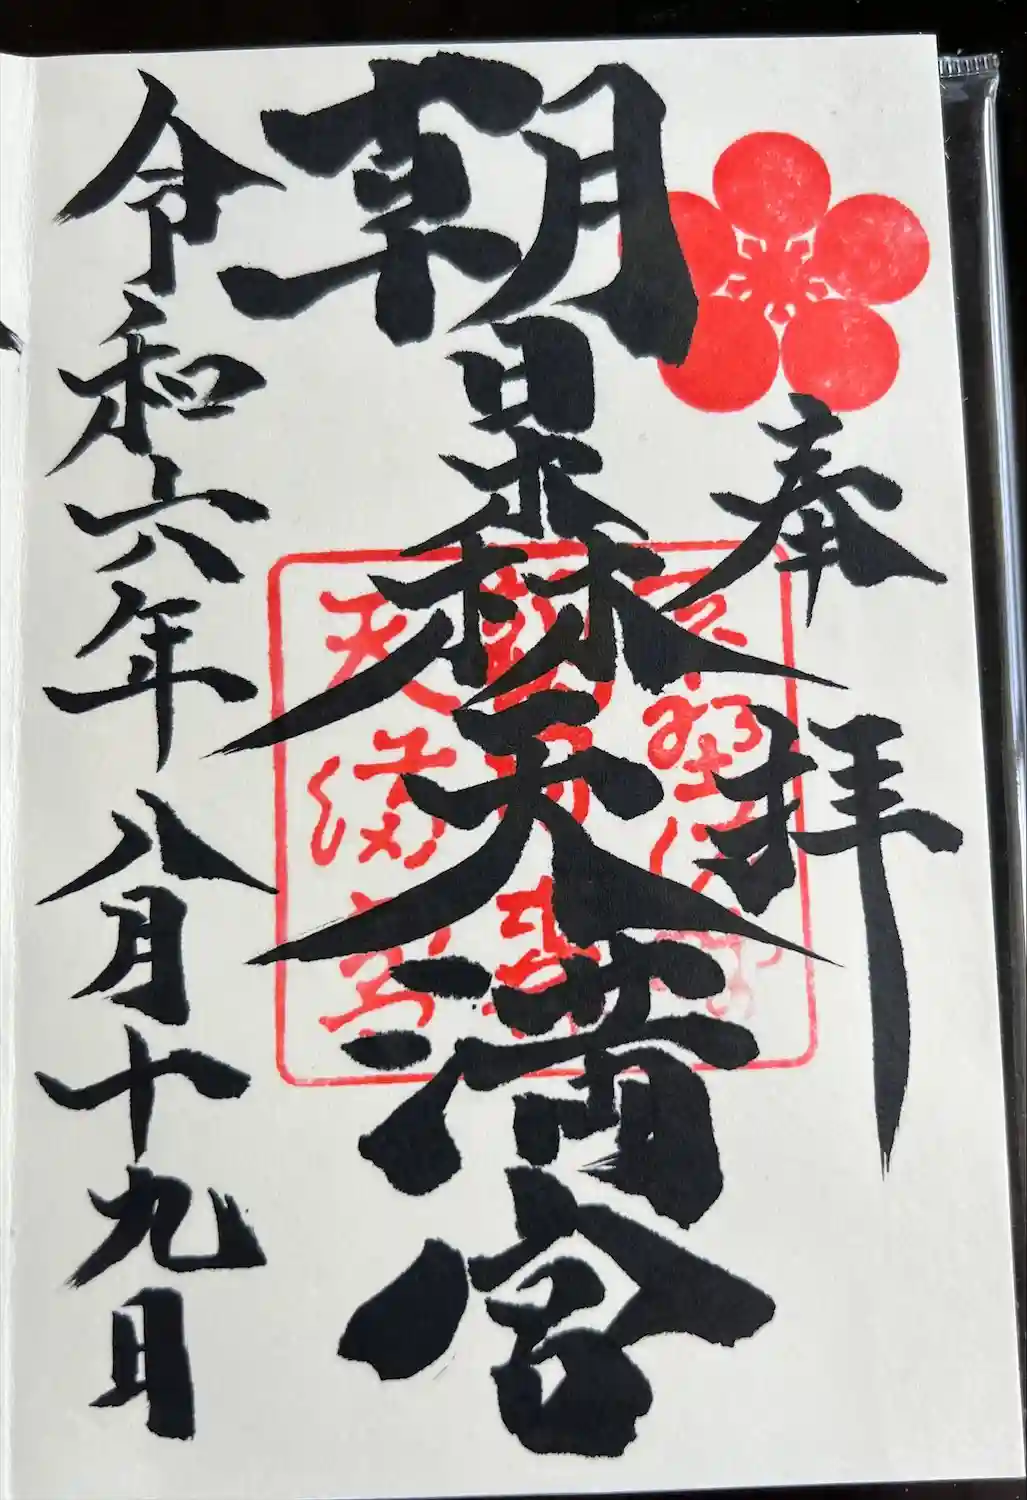 奉拝
朝日森天満宮
天満宮
令和六年八月十九日